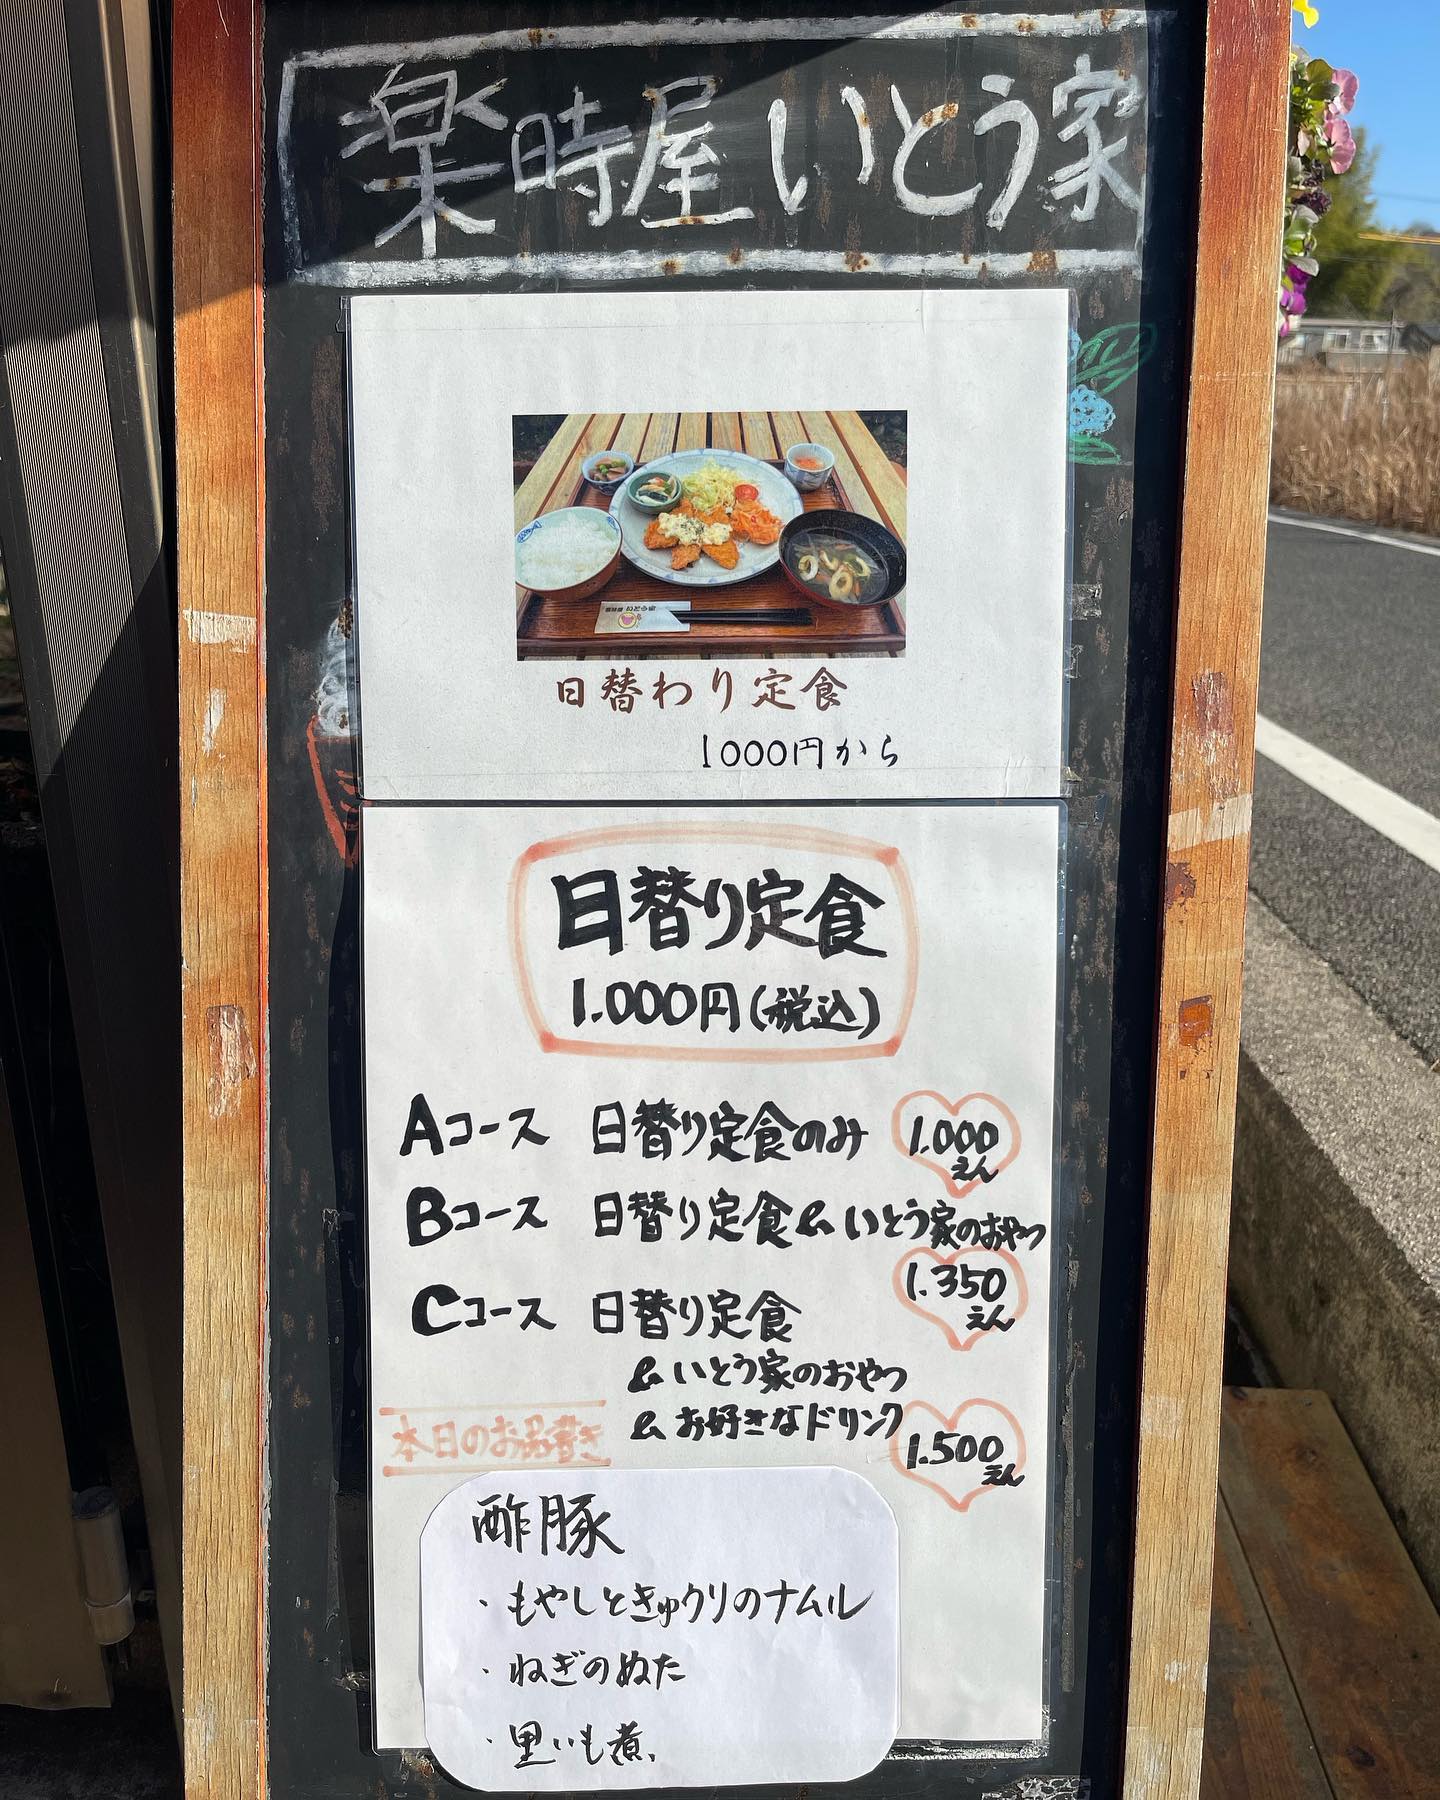 楽時屋 いとう家
楽時屋 いとう家
日替わり定食
1000円から
日替り定食
1.000円(税込)
Aコース 日替り定食のみ 1.000えん
Bコース 日替り定食 & いとう家のおやつ
1.350えん
Cコース 日替り定食
& いとう家のおやつ
& お好きなドリンク 1.500えん
本日のお品書き
酢豚
・もやしときゅウリのナムル
・ねぎのぬた
・里いも煮、